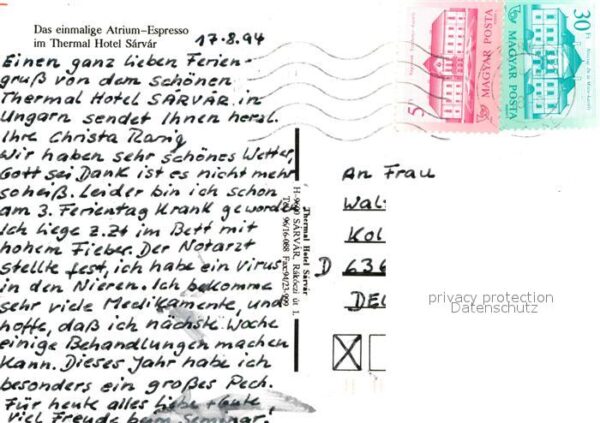 Das einmalige Atrium-Espresso
im Thermal Hotel Sárvár
17.8.94
Einen ganz lieben Ferien-
gruß von dem schönen
Thermal Hotel SÁRVÁR in
Ungarn sendet Ihnen herzl.
Ihre Christa
Wir haben sehr schönes Wetter,
Gott sei Dank ist es nicht mehr
so heiß. Leider bin ich schon
am 3. Ferientag krank geworden
Ich liege z.Zt im Bett mit
hohem Fieber. Der Notarzt
stellte fest, ich habe ein Virus
in den Nieren. Ich bekomme
sehr viele Medikamente, und
hoffe, daß ich nächste Woche
einige Behandlungen machen
kann. Dieses Jahr habe ich
besonders ein großes Pech.
Für heute alles liebe + Gute!
Viel Freude beim Seminar!
Thermal Hotel Sárvár
H-9600 SÁRVÁR, Rákóczi út 1.
Tel: 96/16-088 Fax:94/23-999
5
MAGYAR POSTA
30 Ft
MAGYAR POSTA
An Frau
Wal
Kol
D 636
DE
privacy protection
Datenschutz